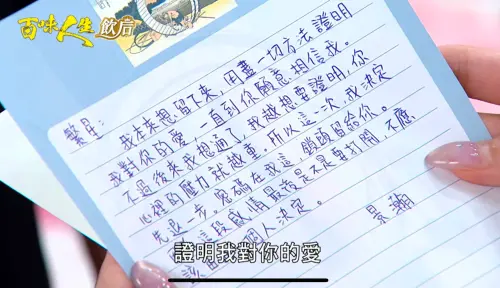 百味人生 飲后
繁星:
我本來想留下來,用盡一切方法證明
我對你的愛,一直到你願意相信我。
不過後來我想通了,我越想要證明,你
心裡的壓力就越重。所以這一次,我決定
先退一步。密碼在我這,鎖頭留給你。
這段感情最後是不是要打開,不應
該由個人決定。
景
證明我對你的愛